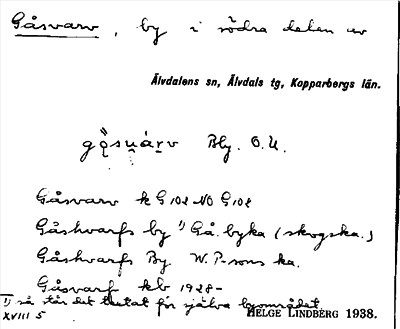 Gåsvarv, by i södra delen av
Älvdalens sn, Älvdals tg, Kopparbergs län.
Bly. O.U.
Gåsvarv k G 102 NO G 102
Gåshvarfs by ¹) Gå. byka (skogska.)
Gåshvarfs By W. P-sons ka.
Gåsvarf kb 1928-
¹) så står det textat för själva byområdet
XVIII 5
HELGE LINDBERG 1938.